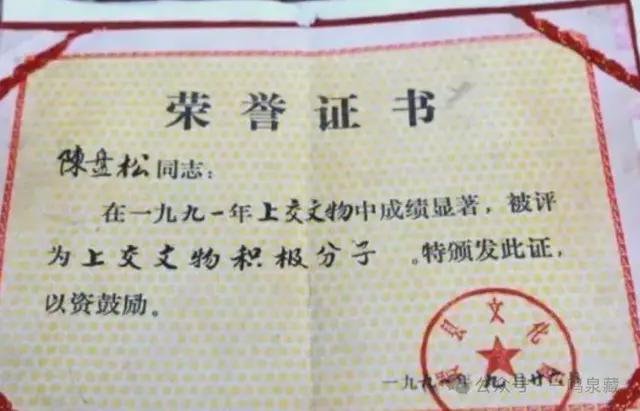 荣誉证书
陳盘松同志：
在一九九一年上交文物中成绩显著，被评
为上交文物积极分子。特颁发此证，
以资鼓励。
县文化
一九九一年九月廿
公众号·一鸣泉藏